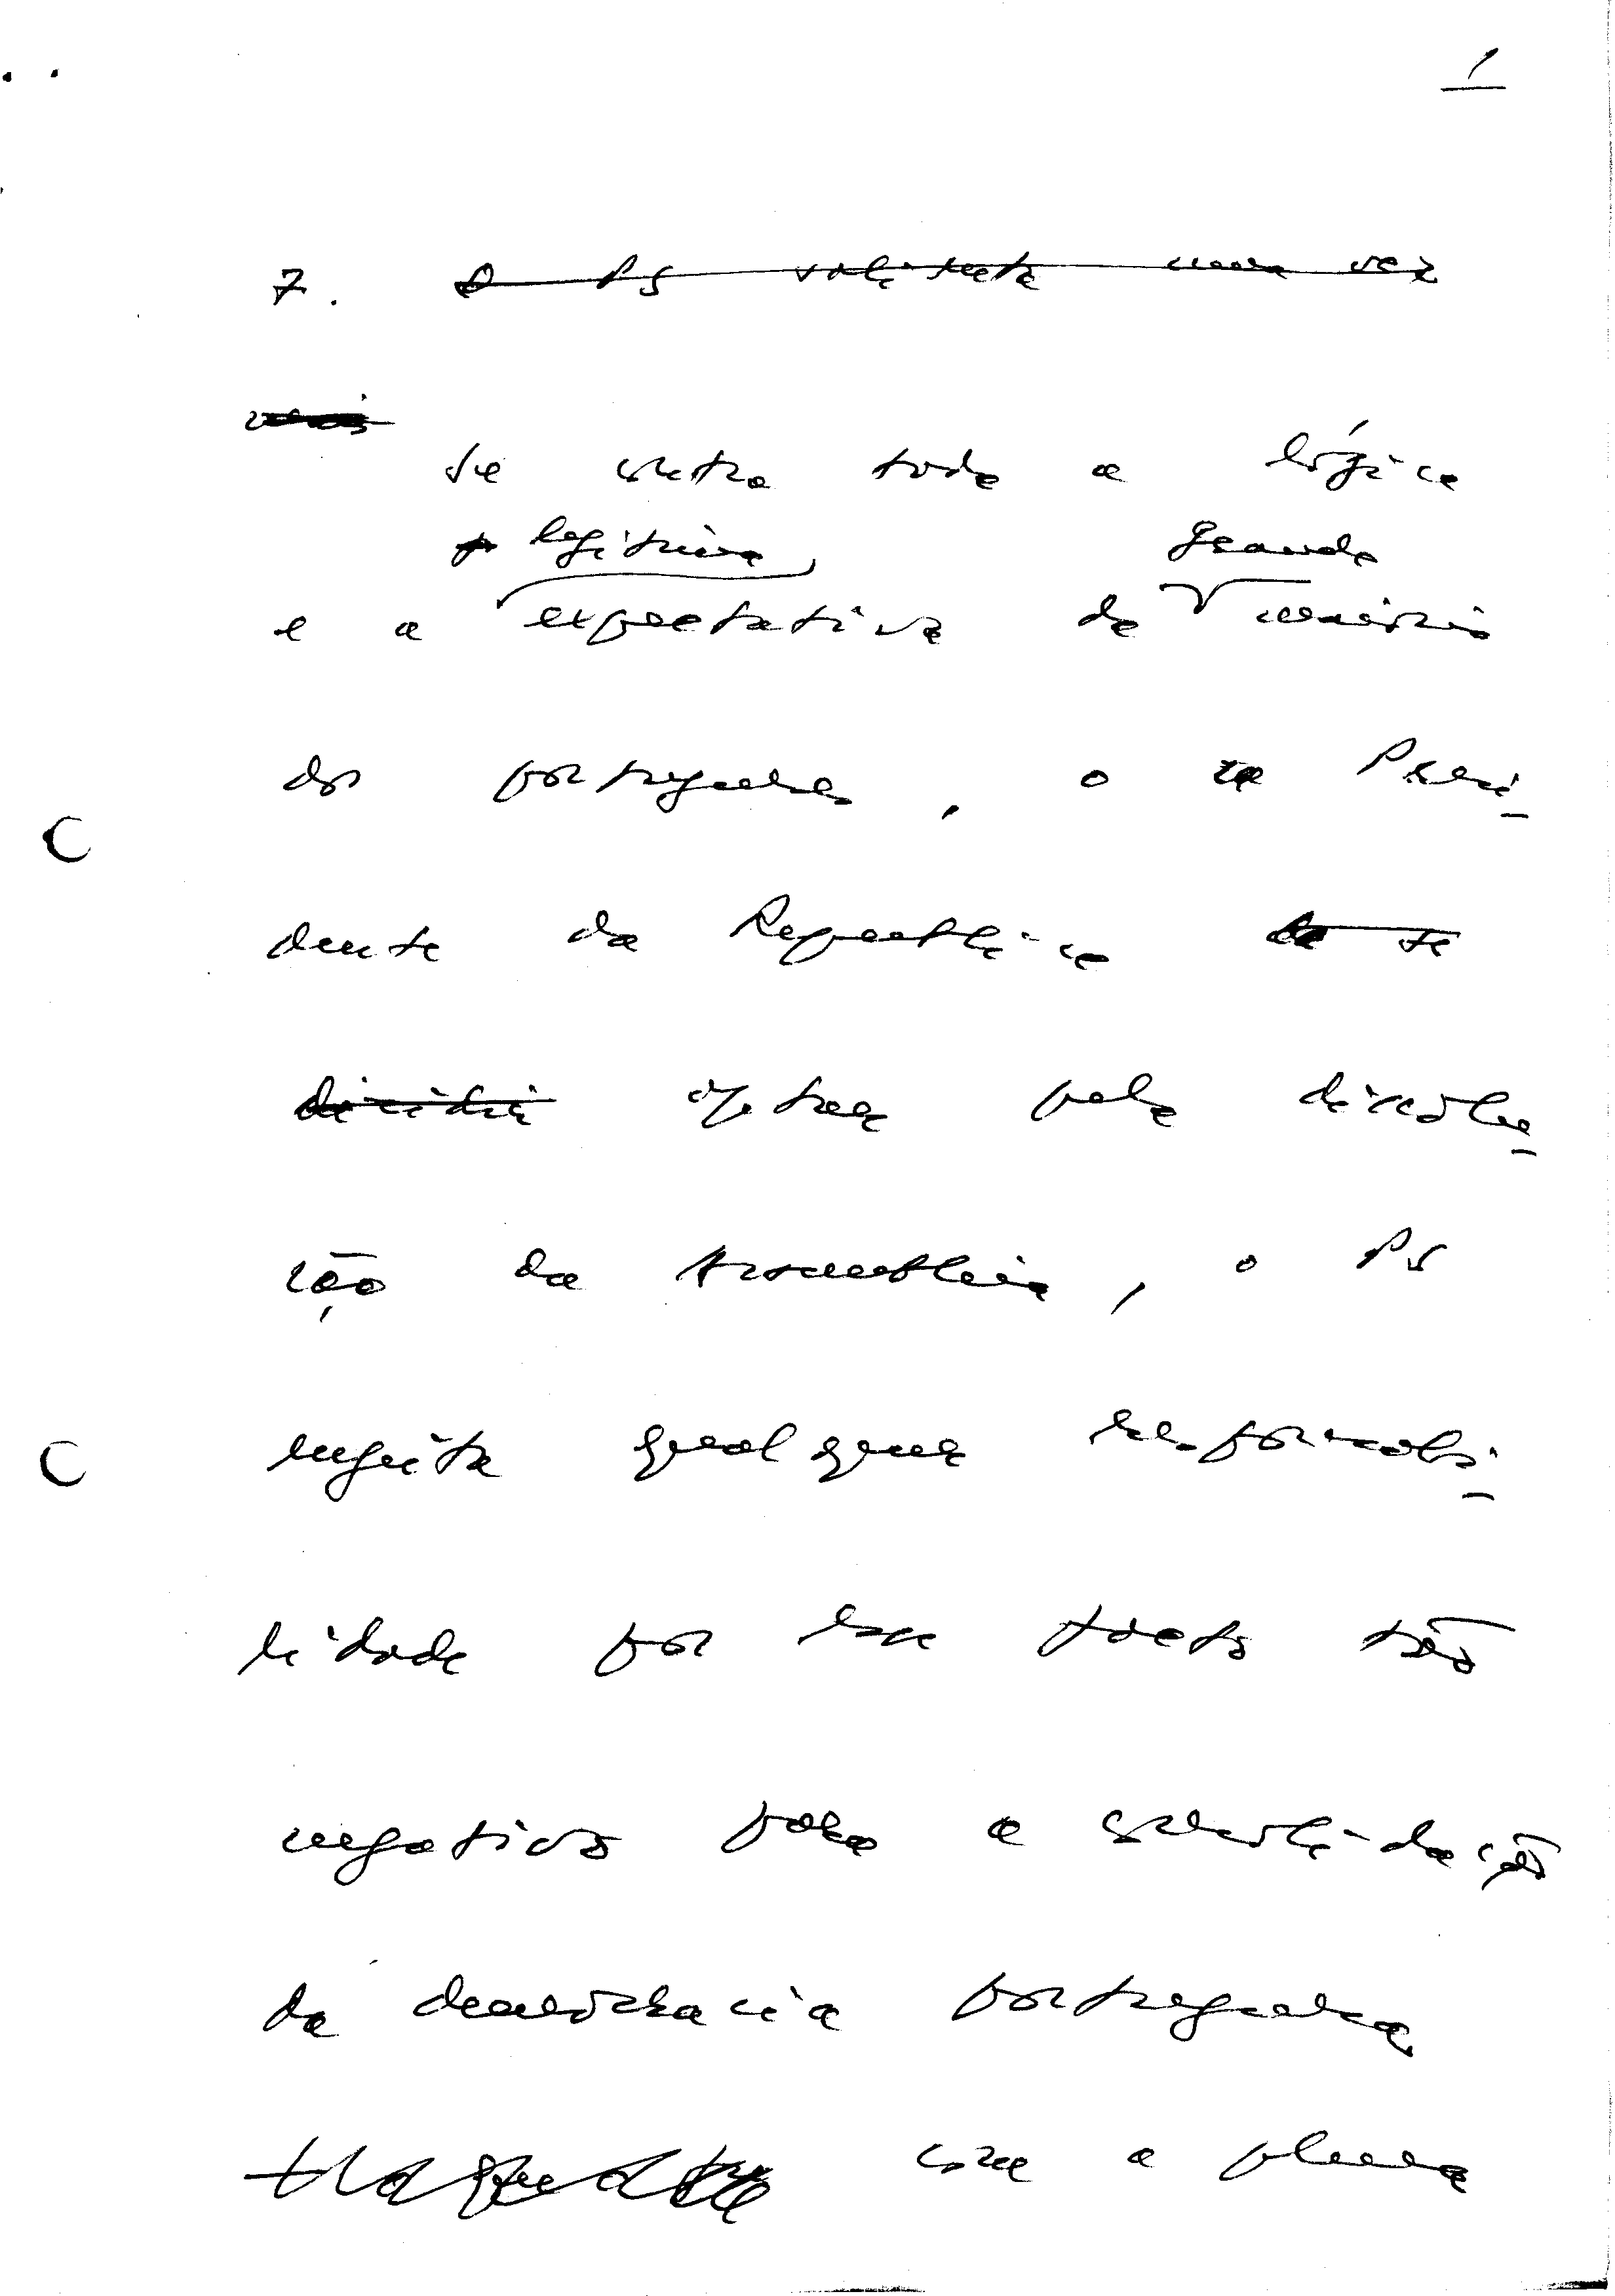 1
7. O PS salienta uma vez
mais
Se contra toda a lógica
legítima, grande
e a expectativa da maioria
dos portugueses, o Presi-
dente da República se
decidir optar pela dissolu-
ção da Assembleia, o PS
rejeita qualquer responsabi-
lidade por esse facto tão
negativo para a consolidação
da democracia portuguesa
com a plena